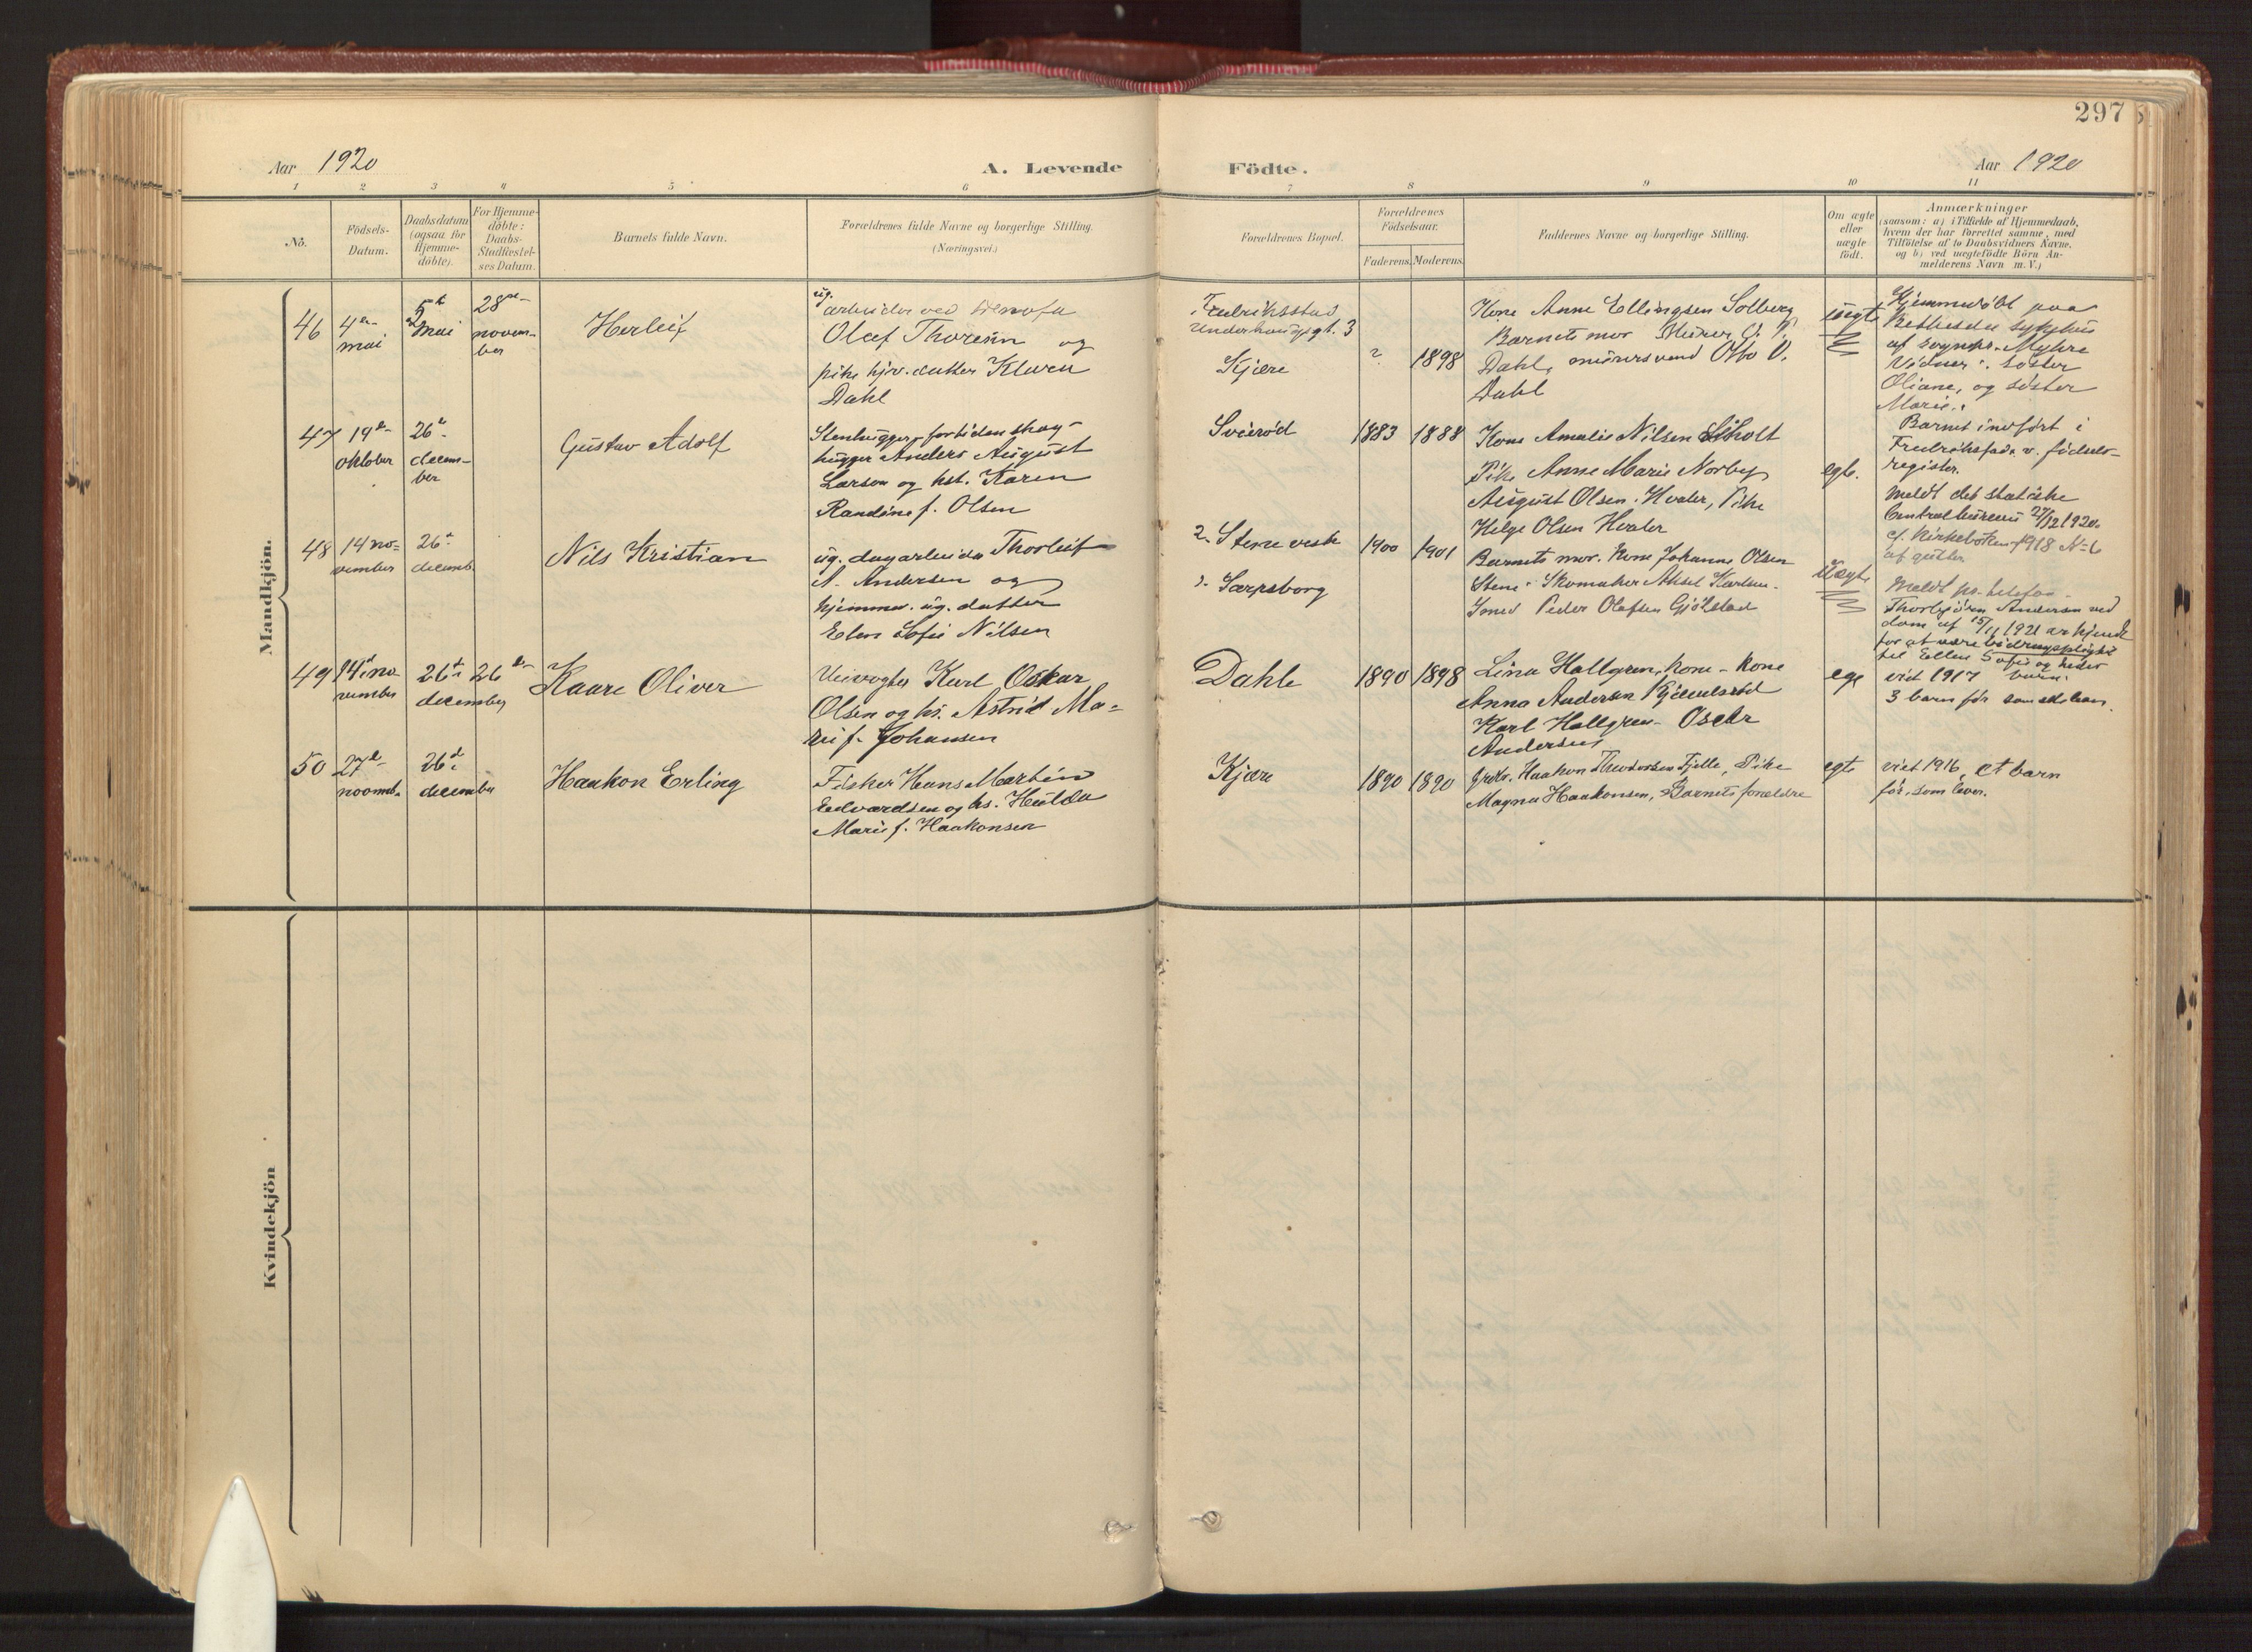 297
Aar 1920
A. Levende
Födte.
Aar 1920
1 2 3 4 5 6 7 8 9 10 11
No.
Födsels-
Datum.
Daabsdatum
(ogsaa for
Hjemme-
döbte).
For Hjemme-
döbte:
Daabs-
Stadfæstel-
ses Datum.
Barnets fulde Navn.
Forældrenes fulde Navne og borgerlige Stilling.
(Næringsvei.)
Forældrenes Bopæl.
Forældrenes
Födselsaar.
Faderens. Moderens.
Faddernes Navne og borgerlige Stilling.
Om ægte
eller
uægte
födt.
Anmærkninger
(saasom: a) i Tilfælde af Hjemmedaab,
hvem der har forrettet samme, med
Tilföielse af to Daabsvidners Navne,
og b) ved uægtefödte Börn An-
melderens Navn m. V.)
Mandkjön.
46
4de
mai
5t
mai
28de
novem-
ber
Herleif
ug.
arbeider ved Denofa
Olaf Thoresen og
pike hjv. datter Klara
Dahl
Fredriksstad
3
Kjære
?
1898
Kone Anne Ellingsen Solberg
Barnets mor
Dahl, murersvend Otto V.
Dahl
uegte
Hjemmedöbt paa
Bethesda sykehus
af sognepr. Myhre
Vidner: söster
Oliane, og söster
Marie.
Barnet indfört i
Fredriksstads v. födsels-
register.
47
19de
oktober
26de
decem-
ber
Gustav Adolf
Stenhugger, fortiden skog-
hugger Anders August
Larsen og hst. Karen
Randine f. Olsen
Svieröd
1883
1888
Kone Amalie Nilsen
Pike Anne Marie Norby
August Olsen Hvaler, Pike
Helge Olsen Hvaler
egte.
Meldt det statistiske
Centralbureau 27/12 1920.
cf. Kirkeboken 1918 No 6
af gutter
48
14 no-
vember
26de
decemb.
Nils Kristian
ug. dagarbeider Thorleif
N. Andersen og
hjemmev. ug. datter
Elen Sofie Nilsen
Sarpsborg
1900
1901
Barnets mor. Kone Johanne Olsen
Stene. Skomaker Aksel Karlsen.
Smed Peder Olafsen Gjölstad
Uegte
Meldt pr. telefon.
Thorbjörn Andersen ved
dom af 15/11 1921 erkjendt
for at være bidragspligtig
til Ellen Sofie og hendes
barn.
49
14de no-
vember
26de
december
26de
Kaare Oliver
Veivogter Karl Oskar
Olsen og hs. Astrid Ma-
rie f. Johansen
Dahle
1890
1898
Lina Hallgren, kone - Kone
Anna Andersen
Karl Hallgren - Oscar
Andersen
egte
viet 1917
3 barn för som alle lever.
50
27de
novemb.
26de
december
Haakon Erling
Fisker Hans Martin
Edvardsen og hs. Hulda
Marie f. Haakonsen
Kjære
1890
1890
Haakon Theodorsen Fjelle, Pike
Magna Haakonsen, Barnets forældre
egte
viet 1916, et barn
för, som lever.
Kvindekjön